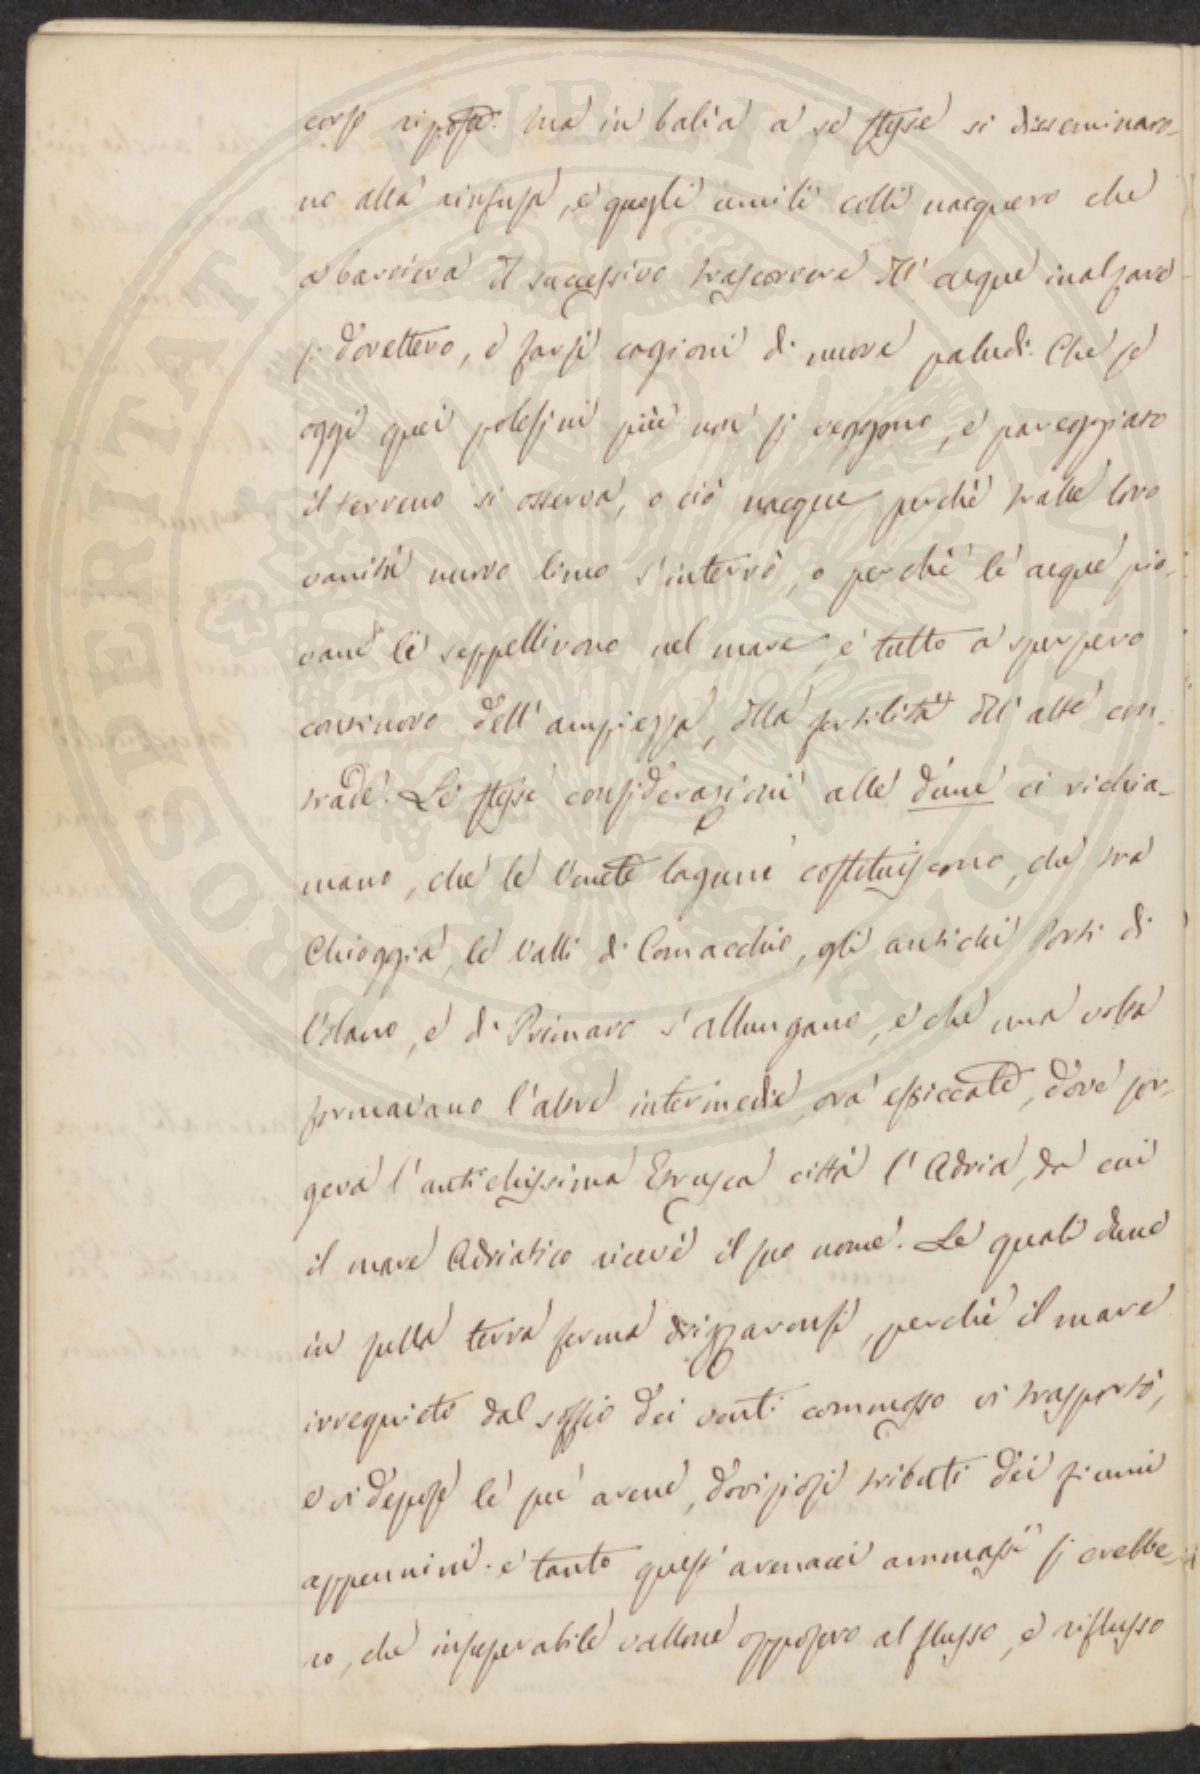 corso riposte. ma in balia a se stesse si disseminaro-
no alla rinfusa, e quegli umili colli nacquero che
a barriera del successivo trascorrere dell' acque inalzare
si dovettero, e farsi cagioni di nuove paludi. Che se
oggi quei polesini più non si veggono, e pareggiato
il terreno si osserva, o ciò nacque perchè tralle loro
vanità nuovo limo s'interrò, o perchè le acque pio-
vane li seppellirono nel mare, e tutto a sperpero
continuovo dell' ampiezza, della fertilità dell' alte con-
trade. Le stesse considerazioni alle dune ci richia-
mano, che le Venete lagune costituiscono, che tra
Chioggia, le Valli di Comacchio, gli antichi Porti di
Volano, e di Primaro s'allungano, e che una volta
formavano l'altre intermedie, ora essiccate, dove sor-
geva l'antichissima Etrusca città l'Adria, da cui
il mare Adriatico riceve il suo nome. Le quali dune
in sulla terra ferma drizzaronsi, perchè il mare
irrequieto dal soffio dei venti commosso vi trasportò,
e vi depose le sue arene, doviziosi tributi dei fiumi
appennini. e tanto questi arenacei ammassi si crebbe-
ro, che insuperabile vallone opposero al flusso, e riflusso
PROSPERITATI PUBLICAE AUGENDAE